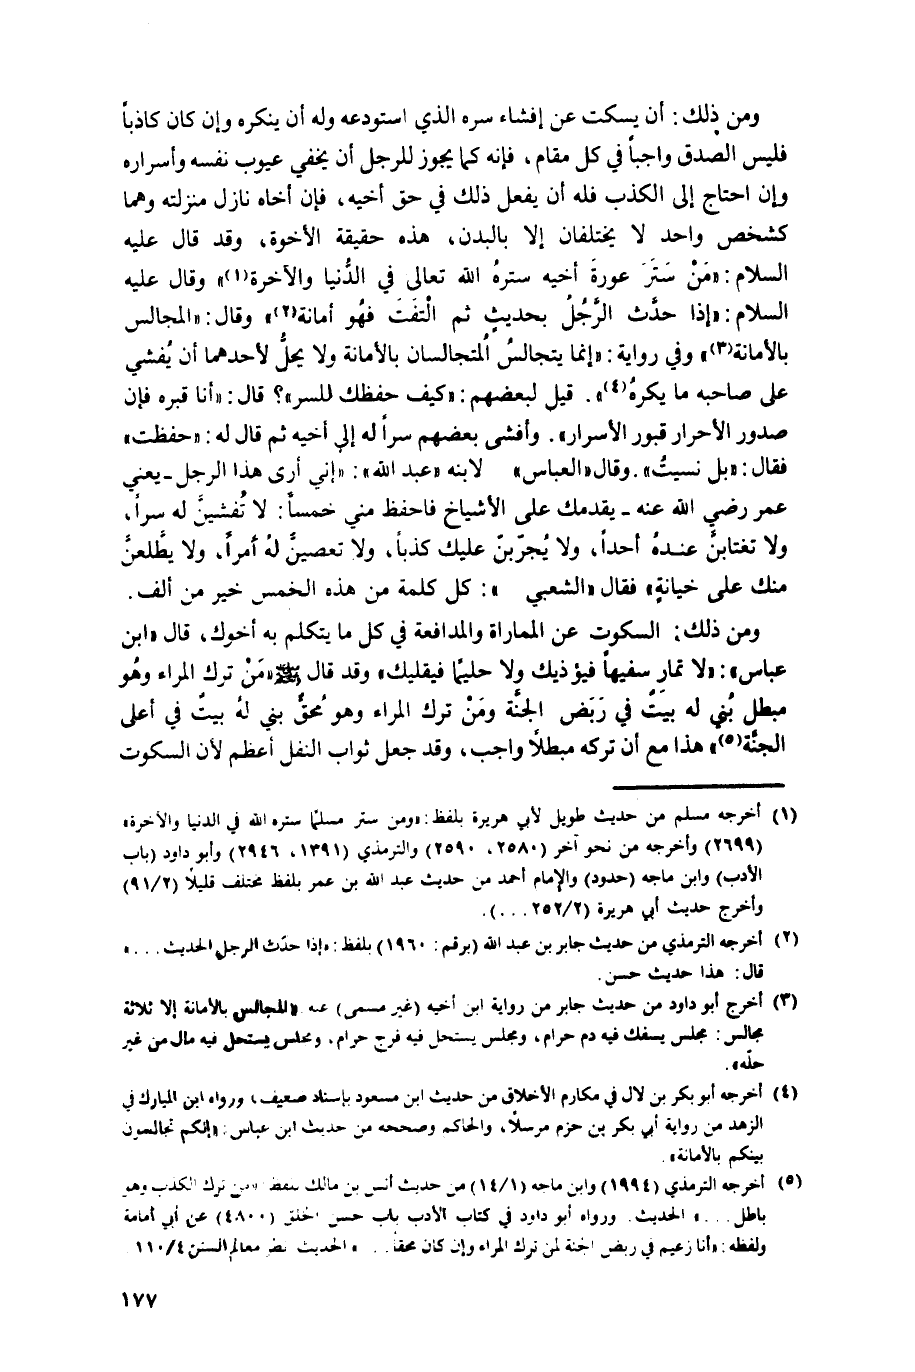 ومن ذلك: أن يسكت عن إفشاء سره الذي استودعه وله أن ينكره وإن كان كاذباً
فليس الصدق واجباً في كل مقام، فإنه كما يجوز للرجل أن يخفي عيوب نفسه وأسراره
وإن احتاج إلى الكذب فله أن يفعل ذلك في حق أخيه، فإن أخاه نازل منزلته وهما
كشخص واحد لا يختلفان إلا بالبدن، هذه حقيقة الأخوة، وقد قال عليه
السلام: «مَنْ سَتَرَ عورةَ أخيه سترهُ الله تعالى في الدُّنيا والآخرة(١)» وقال عليه
السلام: «إذا حدَّث الرَّجُلُ بحديثٍ ثم الْتفَتَ فهُو أمانة(٢)» وقال: «المجالس
بالأمانة(٣)» وفي رواية: «إنما يتجالسُ اُلمتجالسان بالأمانة ولا يحلُّ لأحدهما أن يُفشي
على صاحبه ما يكرهُ(٤)». قيل لبعضهم: «كيف حفظك للسر»؟ قال: «أنا قبره فإن
صدور الأحرار قبور الأسرار». وأفشى بعضهم سراً له إلى أخيه ثم قال له: «حفظت»
فقال: «بل نسيتُ». وقال «العباس» لابنه «عبد الله»: «إني أرى هذا الرجل - يعني
عمر رضي الله عنه - يقدمك على الأشياخ فاحفظ مني خمساً: لا تُفشينَّ له سراً،
ولا تغتابنَّ عندهُ أحداً، ولا يُجرّبنّ عليك كذباً، ولا تعصينَّ لهُ أمراً، ولا يطَّلعنَّ
منك على خيانةٍ» فقال «الشعبي »: كل كلمة من هذه الخمس خير من ألف.
ومن ذلك: السكوت عن المماراة والمدافعة في كل ما يتكلم به أخوك، قال «ابن
عباس»: «لا تمارِ سفيهاً فيؤذيك ولا حليمًا فيقليك» وقد قال ﷺ «مَنْ ترك المراء وهُو
مبطل بُني له بيتٌ في رَبَض الجنَّة ومَنْ ترك المراء وهو مُحقٌّ بني لهُ بيتٌ في أعلى
الجنَّة(٥)» هذا مع أن تركه مبطلاً واجب، وقد جعل ثواب النفل أعظم لأن السكوت
(١) أخرجه مسلم من حديث طويل لأبي هريرة بلفظ: «ومن ستر مسلمًا ستره الله في الدنيا والآخرة»
(٢٦٩٩) وأخرجه من نحو آخر (٢٥٨٠، ٢٥٩٠) والترمذي (١٣٩١، ٢٩٤٦) وأبو داود (باب
الأدب) وابن ماجه (حدود) والإمام أحمد من حديث عبد الله بن عمر بلفظ مختلف قليلاً (٩١/٢)
وأخرج حديث أبي هريرة (٢٥٢/٢...).
(٢) أخرجه الترمذي من حديث جابر بن عبد الله (برقم: ١٩٦٠) بلفظ: «إذا حدّث الرجل الحديث...»
قال: هذا حديث حسن.
(٣) أخرج أبو داود من حديث جابر من رواية ابن أخيه (غير مسمى) عنه «المجالس بالأمانة إلا ثلاثة
مجالس: مجلس يسفك فيه دم حرام، ومجلس يستحل فيه فرج حرام، ومجلس يستحل فيه مال من غير
حلّه».
(٤) أخرجه أبو بكر بن لال في مكارم الأخلاق من حديث ابن مسعود بإسناد ضعيف، ورواه ابن المبارك في
الزهد من رواية أبي بكر بن حزم مرسلاً، والحاكم وصححه من حديث ابن عباس: «إنكم تجالسون
بينكم بالأمانة».
(٥) أخرجه الترمذي (١٩٩٤) وابن ماجه (١٤/١) من حديث أنس بن مالك بلفظ «من ترك الكذب وهو
باطل...» الحديث. ورواه أبو داود في كتاب الأدب باب حسن الخلق (٤٨٠٠) عن أبي أمامة
ولفظه: «أنا زعيم في ربض الجنة لمن ترك المراء وإن كان محقاً...» الحديث نظر معالم السنن ١١٠/٤
١٧٧